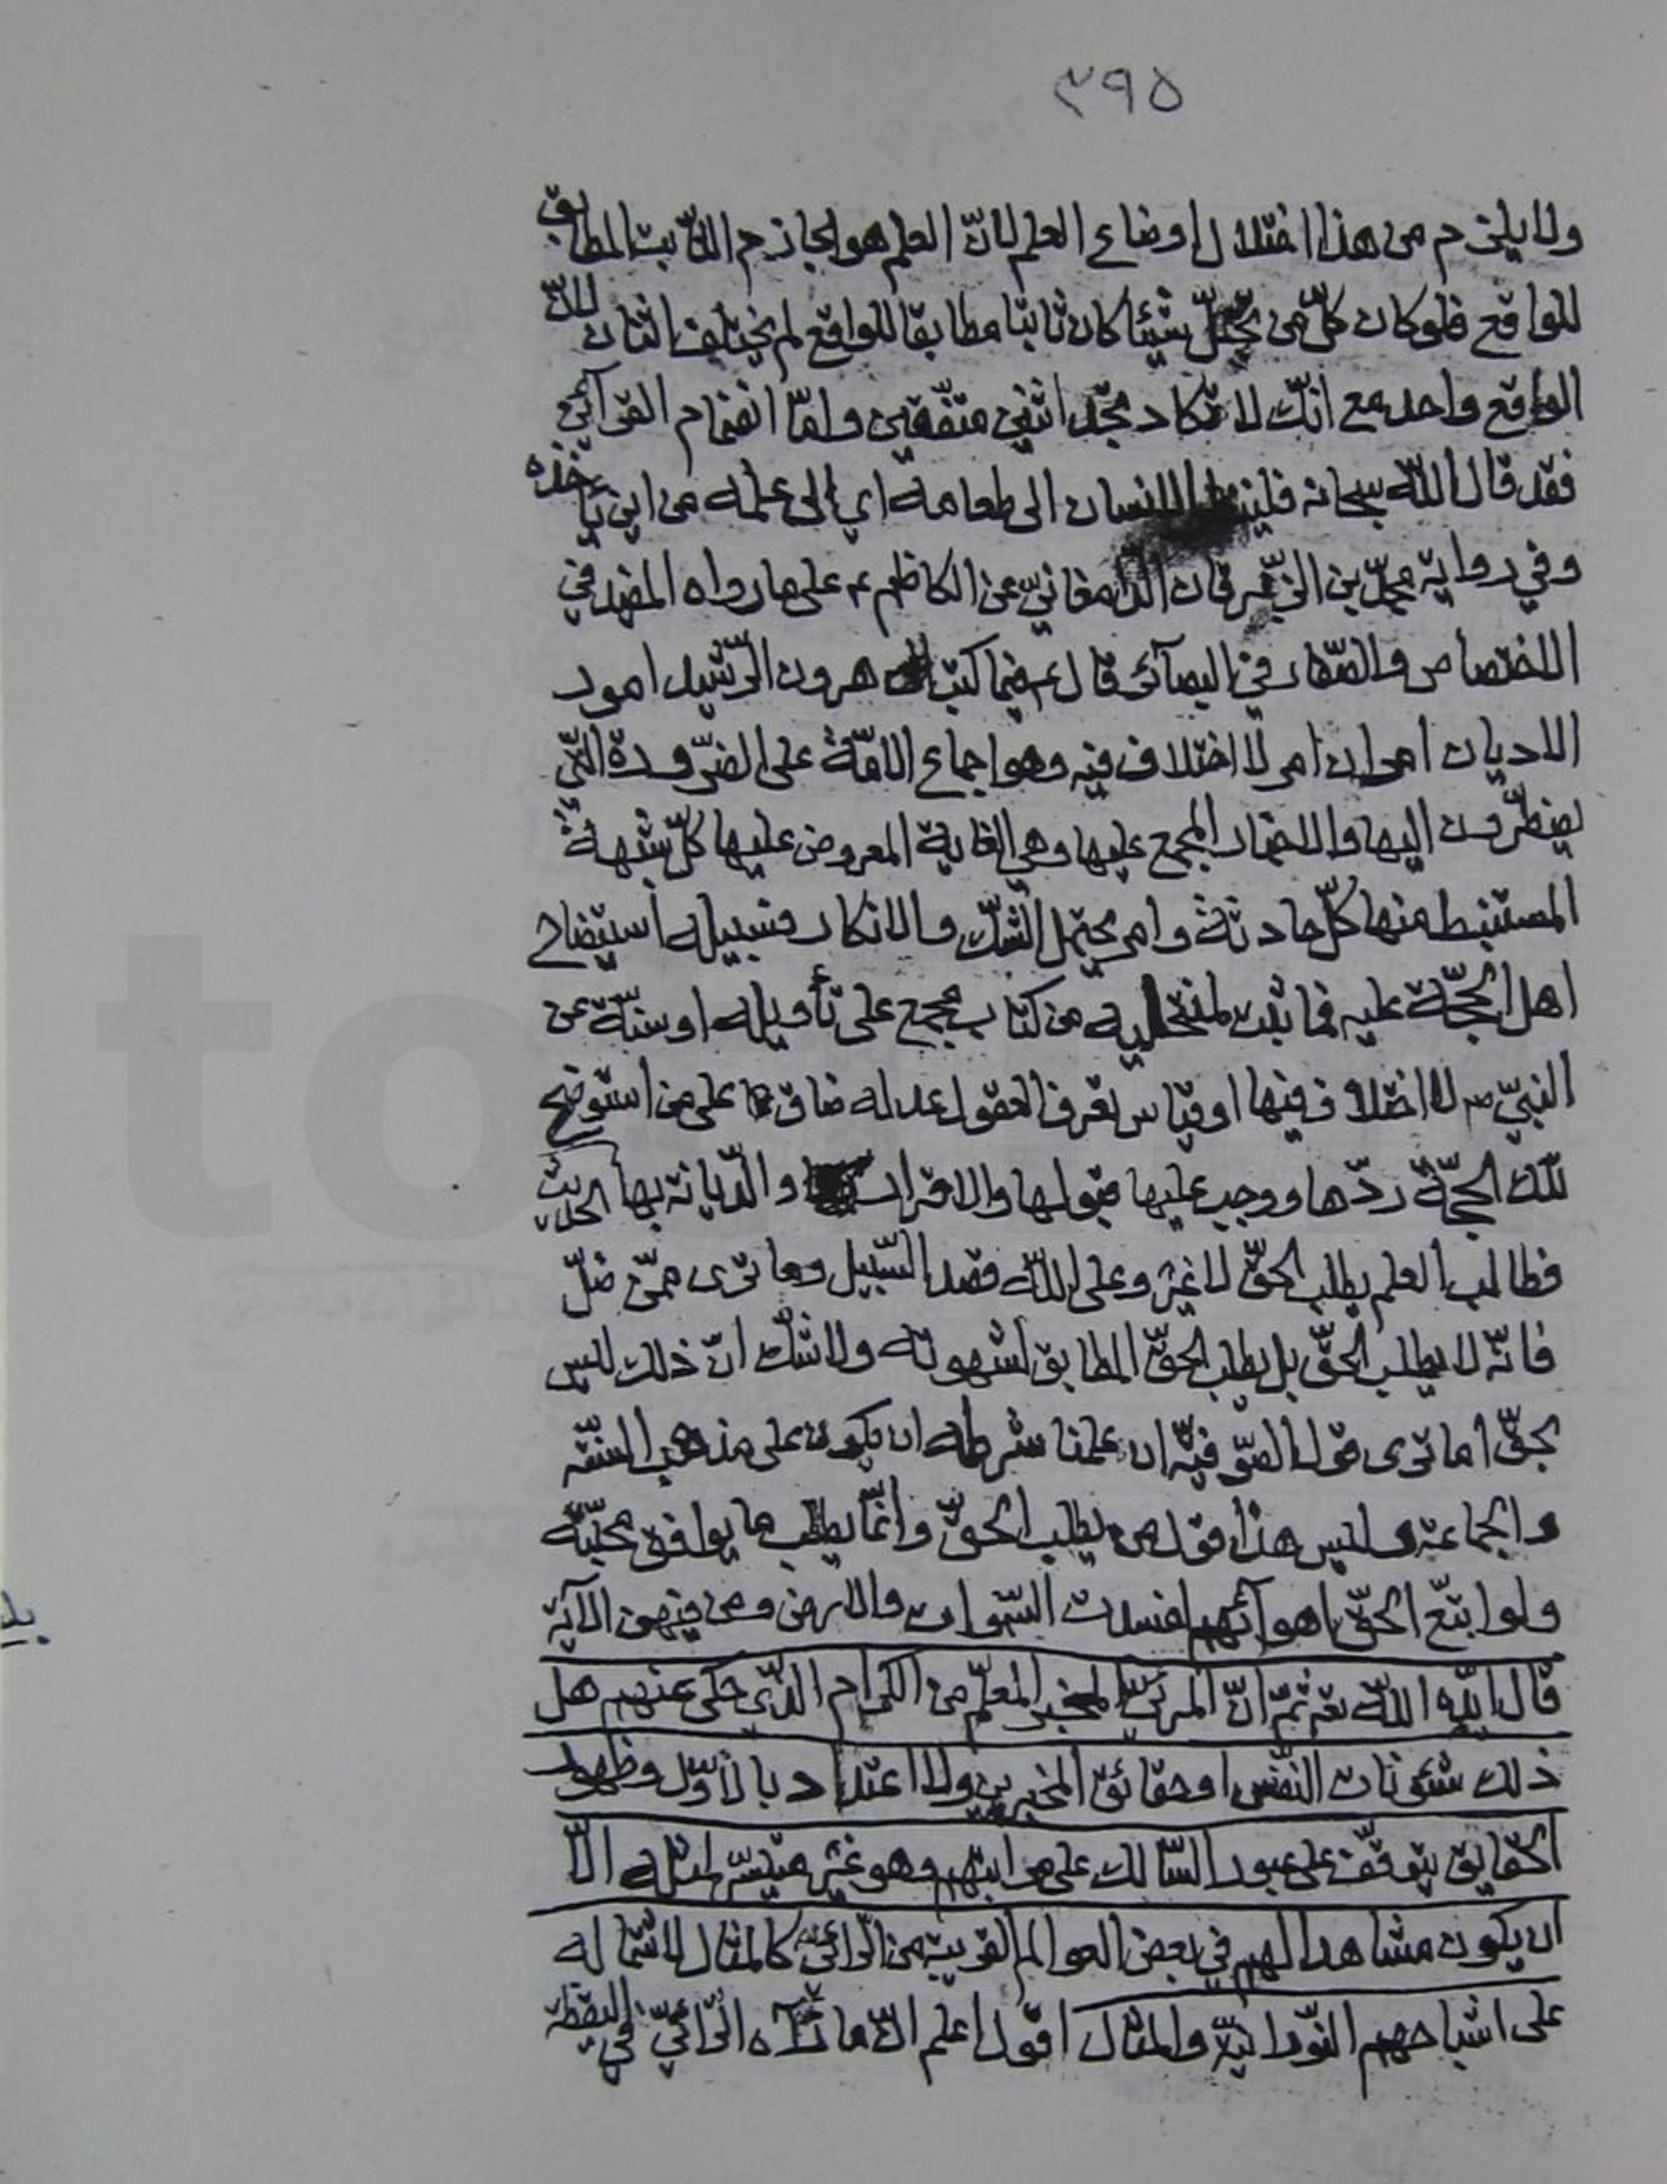 ٣٩٥
ولا يلزم من هذا اختلال اوضاع العلم لانّ العلم هو الجازم الثّابت المطابق
للواقع فلو كان كلّ من تخيّل شيئا كان ثابتا مطابقا للواقع لم يختلف اثنان لانّ
الواقع واحد مع انّك لا تكاد تجد اثنين متّفقين وامّا انضمام القرآئن
فقد قال اللّه سبحانه فلينظر الانسان الى طعامه اي الى علمه من اين يأخذه
وفي رواية محمّد بن الزّبرقان الدّامغانيّ عن الكاظم ع على ما رواه المفيد في
الاختصاص والصّفار في البصآئر قال ع فيما كتب هرون الرّشيد امور
الاديان امران امر لا اختلاف فيه وهو اجماع الامّة على الضّرورة الّتي
يضطرّون اليها والاخبار المجمع عليها وهي الغاية المعروض عليها كلّ شبهة
المستنبط منها كلّ حادثة وامر يحتمل الشّك والانكار فسبيله استيضاح
اهل الحجّة عليه فما ثبت لمنتحليه من كتاب مجمع على تأويله او سنّة عن
النبيّ ص لا اختلاف فيها او قياس تعرف العقول عدله ضاق على من استوضح
تلك الحجّة ردّها ووجب عليها قبولها والاقرار والدّيانة بها الحديث
فطالب العلم يطلب الحقّ لا غير وعلى اللّه قصد السّبيل وما ترى ممّن ضلّ
فانّه لا يطلب الحقّ بل يطلب الحقّ المطابق لشهوته ولا شكّ انّ ذلك ليس
بحقّ اما ترى قول الصّوفيّة ان علمنا شرطه ان يكون على مذهب السنّة
والجماعة وليس هذا قول من يطلب الحقّ وانّما يطلب ما يوافق محبّته
ولو اتبّع الحقّ اهوآئهم لفسدت السّموات والارض ومن فيهن الآية
قال ايّده اللّه تع ثمّ انّ المرئيّ المخبر المعلّم من الكرام الّذي حكى عنهم هل
ذلك شئونات النّفس او حقائق المخبرين ولا اعتداد بالاوّل وظهور
الحقايق يتوقّف على عبور السّالك على مراتبهم وهو غير متيسّر لمثله الّا
ان يكون مشاهدا لهم في بعض العوالم القريبة من الرّائي كالمثال لاشتماله
على اشباحهم النّورانيّة والمثال اقول اعلم انّ ما رآه الرّائي في اليقظة